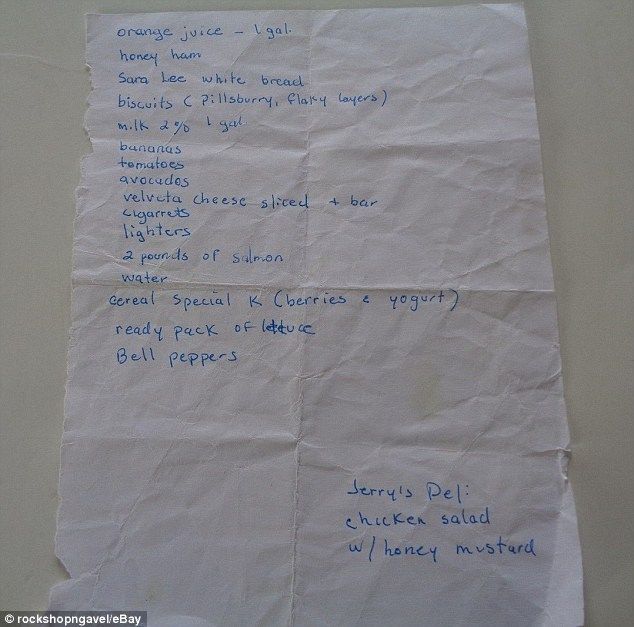 orange juice - 1 gal.
honey ham
Sara Lee white bread
biscuits ( Pillsburry, flaky layers )
milk 2% 1 gal.
bananas
tomatoes
avocados
velveta cheese sliced + bar
cigarrets
lighters
2 pounds of salmon
water
cereal Special K (berries & yogurt)
ready pack of lettuce
Bell peppers
Jerry's Deli:
chicken salad
w/ honey mustard
© rockshopngavel/eBay